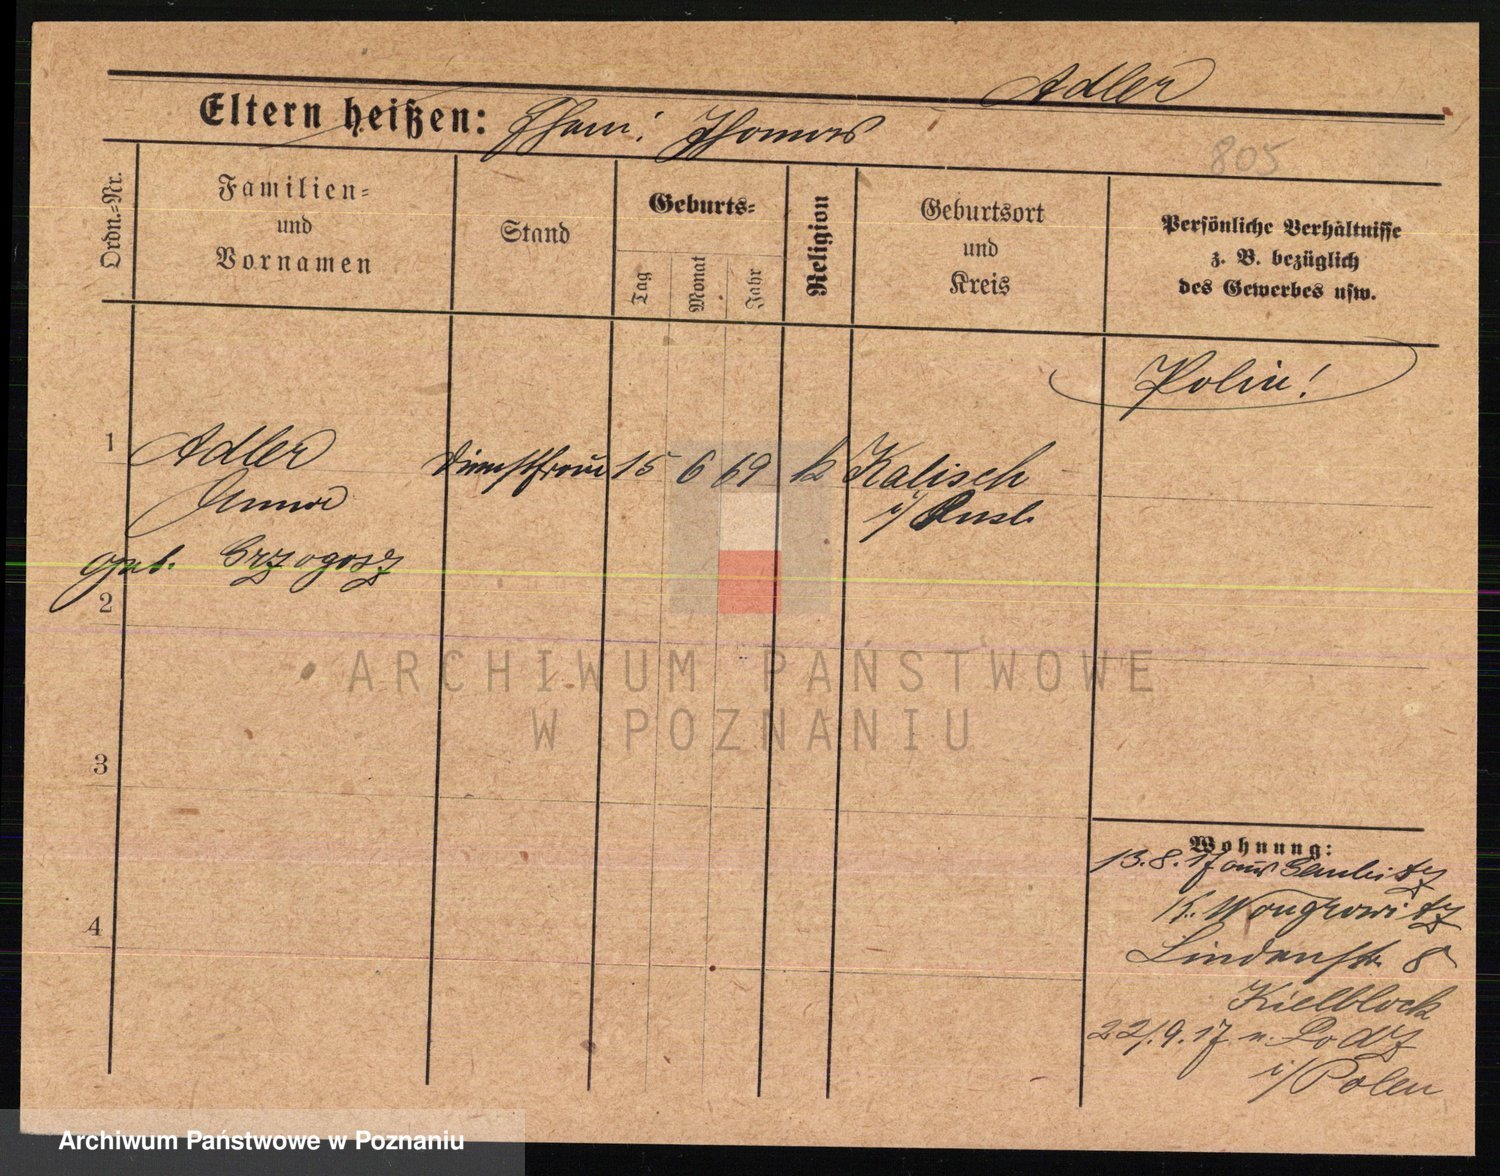 Adler
Eltern heißen: Ehem: Thomas
805
Ordn.=Nr.
Familien=
und
Vornamen
Stand
Geburts=
Tag
Monat
Jahr
Religion
Geburtsort
und
Kreis
Persönliche Verhältnisse
z. B. bezüglich
des Gewerbes usw.
Polin!
1
Adler
Dienstfrau 15 6 69 k Kalisch
i/ Rusl.
geb.
2
3
4
Wohnung:
13.8.17 aus
K. Wongrowitz
Lindenstr. 8
Kielblock
22/.9.17 n. Lodz
i/Polen
ARCHIWUM PAŃSTWOWE
W POZNANIU
Archiwum Państwowe w Poznaniu